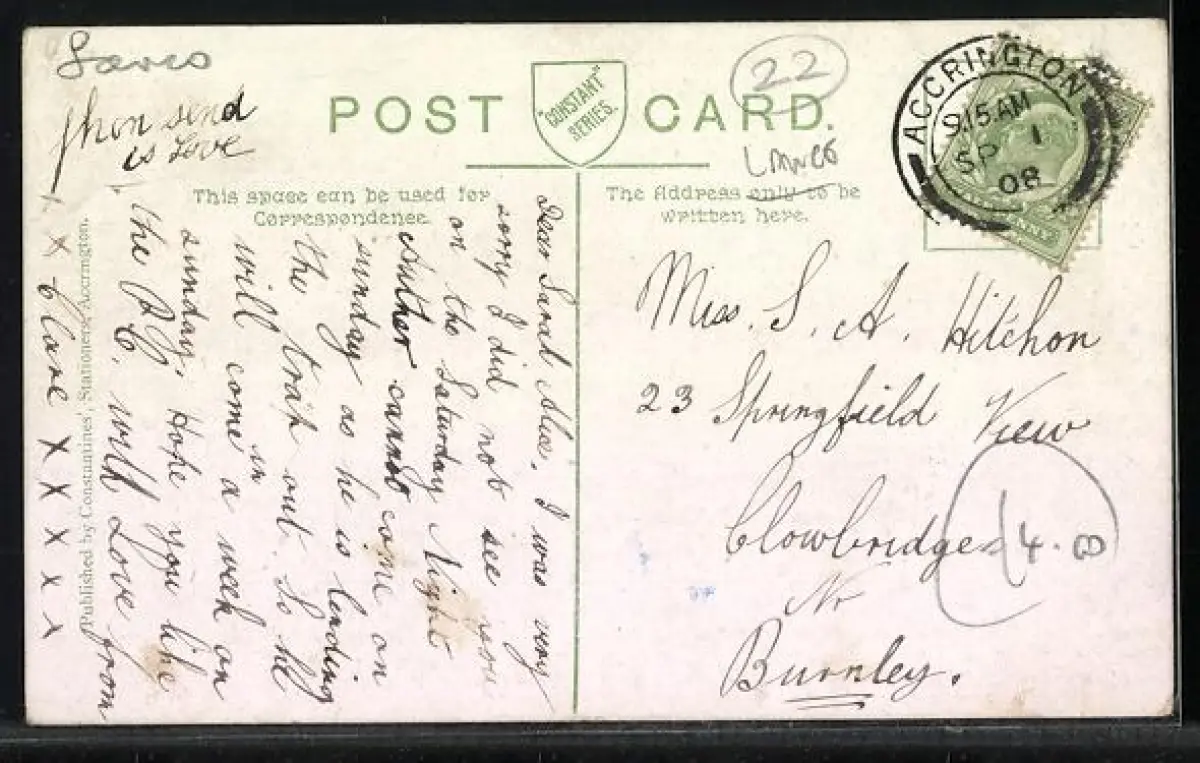 POST CARD.
"CONSTANT" SERIES.
22
Lancs
ACCRINGTON
9.15 AM
SP 1
08
This space can be used for
Correspondence.
The Address only to be
written here.
Dear Sarah Alice, I was very
sorry I did not see you
on the Saturday Night
Arther cannot come on
sunday as he is leading
the trait out. So he
will come a week on in
sunday, Hope you like
the P.C. with Love from
Clare X X X X X
X
send
is Love
Published by Constantines', Stationers, Accrington.
Miss. S. A. Hitchon
23 Springfield View
Clowbridge
Nr
Burnley.
4.8